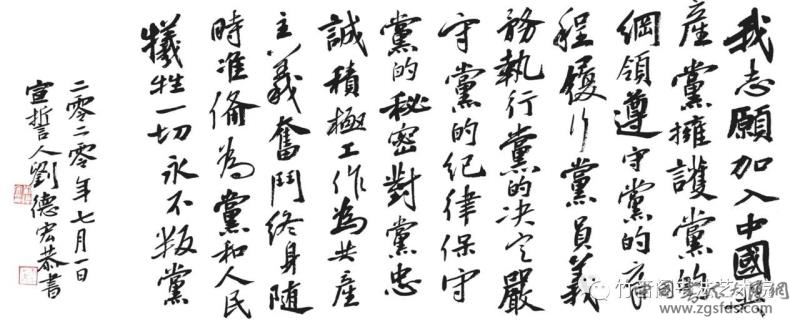 我志願加入中國共
産黨擁護黨的
綱領遵守黨的章
程履行黨員義
務執行黨的决定嚴
守黨的纪律保守
黨的秘密對黨忠
誠積極工作為共産
主義奮鬥终身随
時准備為黨和人民
犧牲一切永不叛黨
二零二零年七月一日
宣誓人劉德宏恭書
www.zgsfds.com